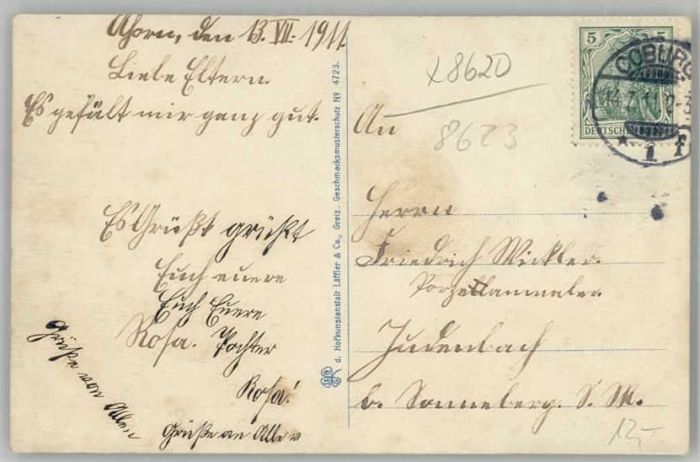 Ahorn, den 13. VII. 1911.
Liebe Eltern.
Es gefält mir ganz gut.
Es Grüßt grüßt
Euch euere
Euch Euere
Rosa. Tochter
Rosa!
Grüße von Allen
Grüße an Alle
d. Hofkunstanstalt Löffler & Co., Greiz. Geschmacksmusterschutz Nº 4723.
x8620
8623
5 5
DEUTSCHES
COBURG
1. f
An
Herrn
Friedrich Winkler.
Porzellanmaler.
Judenbach
b. Sonneberg. S. M.
12-